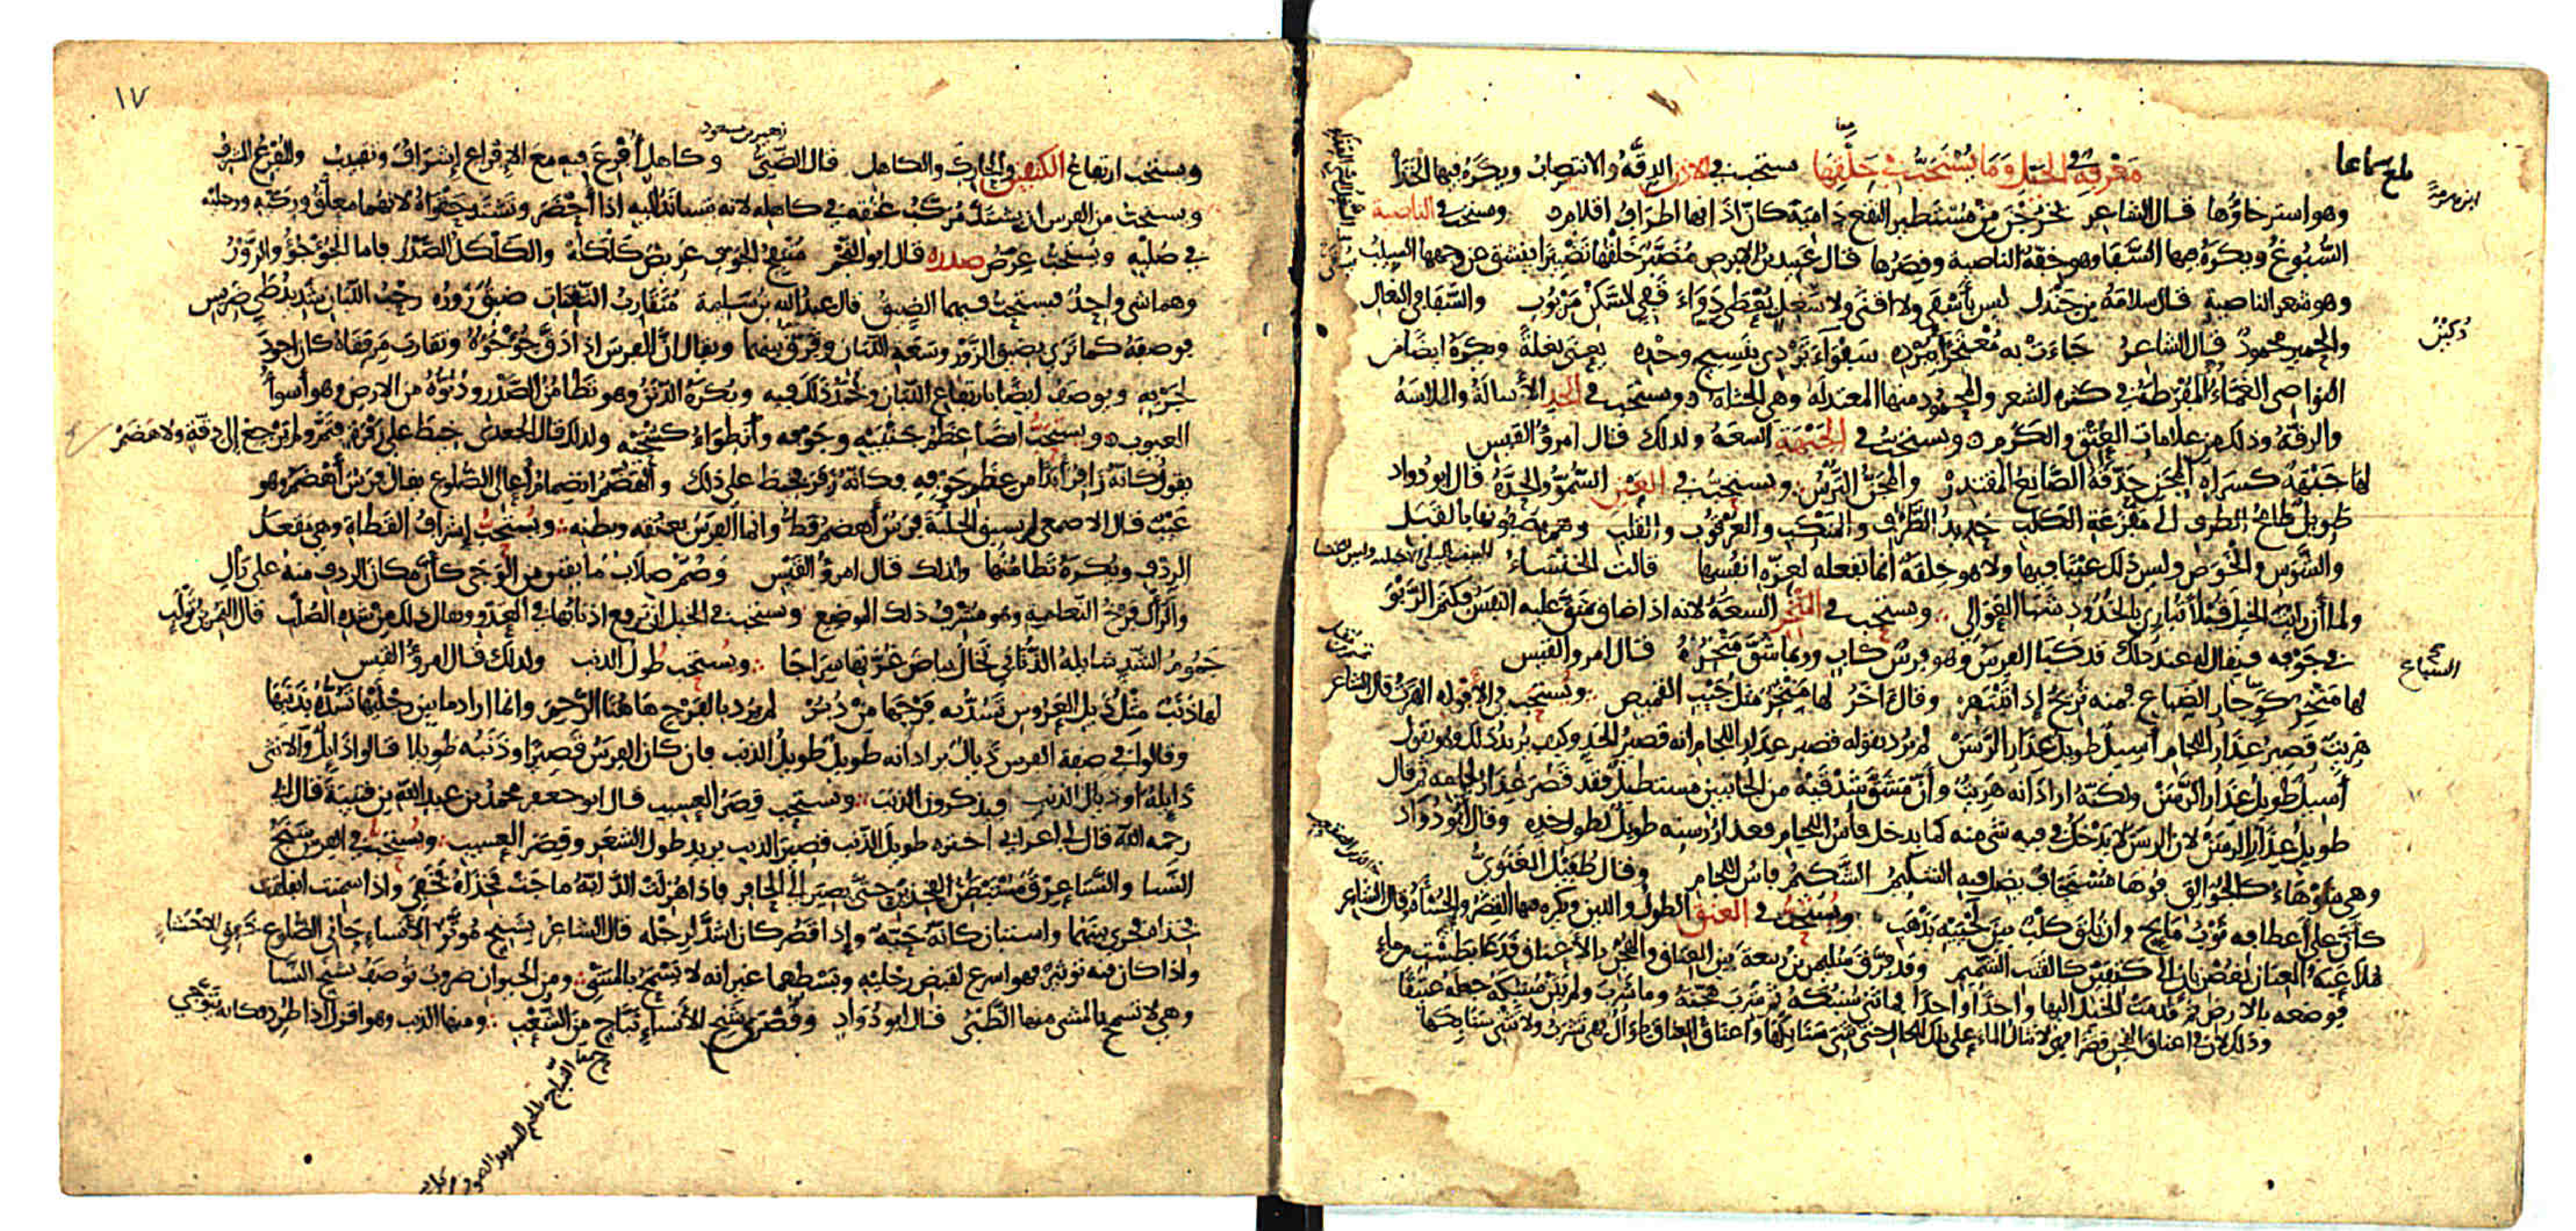 بلغ سماعا
معرفة في الخيل وما يستحب في خلقها يستحب في الاذن الدقة والانتصاب ويكره فيها الخذا
وهو استرخاؤها قال الشاعر يخرجن من مستطير النقع دامية كان اذانها اطراف اقلام ويستحب في الناصية
السبوغ ويكره فيها السفا وهو خفة الناصية وقصرها قال عبيد بن الابرص مضبر خلقها تضبيرا ينشق عن وجهها السبيب
وهو شعر الناصية قال سلامة بن جندل ليس بأسفى ولا اقنى ولا سغل يعطى دواء قفي السكن مربوب والسفا في البغال
والحمير محمود قال الشاعر جاءت به معتجرا ببرده سفواء تردي بنسيج وحده يعني بغلة ويكره ايضا من
النواصي الغماء المفرطة في كثرة الشعر والمحمود منها المعتدلة وهي الجثلة ويستحب في الخد الأسالة والملاسة
والرقة وذلك من علامات العتق والكرم ويستحب في الجبهة السعة ولذلك قال امرؤ القيس
لها جبهة كسراة المجن حذقه الصانع المقتدر والمجن الترس ويستحب في العين السمو والحدة قال ابو دواد
طويل طامح الطرف الى مفزعة الكلب حديد الطرف والمنكب والعرقوب والقلب وهم يصفونها بالقبل
والشوس والخوص وليس ذلك عيبا فيها ولا هو خلقة انما تفعله لعزة انفسها قالت الخنساء
ولما أن رايت الخيل قبلا تباري بالخدود شبا العوالي ويستحب في المنخر السعة لانه اذا ضاق شق عليه النفس فكتم الربو
في جوفه فيقال له عند ذلك قد كبا الفرس وهو فرس كاب وربما شق منخره قال امرو القيس
لها منخر كوجار الضباع فمنه تريح إذا تنبهر وقال آخر لها منخر مثل جيب القميص ويستحب في الأفواه الهرت قال الشاعر
هريت قصير عذار اللجام أسيل طويل عذار الرسن لم يرد بقوله قصير عذار اللجام انه قصير الخد وكيف يريد ذلك وهو يقول
أسيل طويل عذار الرسن ولكنه اراد أنه هريت وأن مشق شدقيه من الجانبين مستطيل فقد قصر عذار لجامه ثم قال
طويل عذار الرسن لان الرسن لا يدخل في فيه شي منه كما يدخل فأس اللجام فعذار رسنه طويل لطول خده وقال أبو دواد
وهي شوهاء كالجوالق فوها مستجاف يضل فيه الشكيم الشكيم فأس اللجام وقال طفيل الغنوي
كأن على أعطافه ثوب مايح وان يلق كلب بين لحييه يذهب ويستحب في العنق الطول واللين ويكره فيها القصر والجسأة قال الشاعر
ملاعبة العنان بغصن بان الى كتفين كالقتب الشميم وقد فرق سليمن بن ربيعة بين العتاق والهجن بالأعناق فدعا بطشت من ماء
فوضعه بالارض ثم قدمت الخيل اليها واحدا واحدا فما ثنى سنبكه ثم شرب هجنه وما شرب ولم يثن سنبكه جعله عتيقا
وذلك لان في اعناق الهجن قصرا فهي لا تنال الماء على تلك الحال حتى تثني سنابكها وأعناق العتاق طوال فهي تشرب ولا تثني سنابكها
دكين
١٧
زهير بن مسعود
ويستحب ارتفاع الكتفين والحارك والكاهل قال الضبي وكاهل أفرع فيه مع الإفراع إشراف وتقبيب والمفرع المشرف
ويستحب من الفرس ان يشتد مركب عنقه في كاهله لانه يتساند اليه اذا أحضر وتشتد حقواه لانهما معلق وركيه ورجليه
في صلبه ويستحب عرض صدره قال ابو النجم منتفج الجوف عريض كلكله والكلكل الصدر فاما الجؤجؤ والزور
وهما شي واحد فيستحب فيهما الضيق قال عبد الله بن سليمة متقارب الثفنات ضيق زوره رحب اللبان شديد طي ضريس
فوصفه كما ترى بضيق الزور وسعة اللبان وفرق بينهما ويقال ان الفرس اذا دق جؤجؤه وتقارب مرفقاه كان اجود
لجريه ويوصف ايضا بارتفاع اللبان ويحمد ذلك فيه ويكره الدنن وهو تطامن الصدر ودنوه من الارض وهو أسوأ
العيوب ويستحب ايضا عظم جنبيه وجوفه وانطواء كشحه ولذلك قال الجعدي خيط على زفرة فتم ولم يرجع إلى دقة ولا هضم
يقول كانه زافر أبدا من عظم جوفه فكانه زفر فخيط على ذلك والهضم انضمام أعالي الضلوع يقال فرس أهضم وهو
عيب قال الاصمعي لم يسبق الحلبة فرس أهضم قط وانما الفرس بعنقه وبطنه ويستحب إشراف القطاة وهي مقعد
الردف ويكره تطامنها ولذلك قال امرؤ القيس وصم صلاب ما يقين من الوجى كأن مكان الردف منه على رأل
والرأل فرخ النعامة وهو مشرف ذلك الموضع ويستحب في الخيل ان ترفع اذنابها في العدو ويقال ذلك من شدة الصلب قال النمر بن تولب
جموم الشد شايلة الذنابى تخال بياض غرتها سراجا ويستحب طول الذنب ولذلك قال امرؤ القيس
لها ذنب مثل ذيل العروس تسد به فرجها من دبر لم يرد بالفرج هاهنا الرحم وانما اراد ما بين رجليها تسده بذنبها
وقالوا في صفة الفرس ذيال يراد انه طويل طويل الذنب فان كان الفرس قصيرا وذنبه طويلا قالوا ذايل والانثى
ذايلة او ذيال الذنب فيذكرون الذنب ويستحب قصر العسيب قال ابو جعفر محمد بن عبد الله بن قتيبة قال ابي
رحمه الله قال لي اعرابي اختره طويل الذنب قصير الذنب يريد طول الشعر وقصر العسيب ويستحب في الفرس شنج
النسا والنسا عرق مستبطن الفخذين حتى يصير الى الحافر فاذا هزلت الدابة ماجت فخذاه فخفي واذا سمنت انفلقت
فخذاه فجرى بينهما واستبان كانه حية وإذا قصر كان اشد لرجله قال الشاعر بشنج موتر الأنساء حابي الضلوع خفق الاحشاء
واذا كان فيه توتير فهو اسرع لقبض رجليه وبسطهما غير انه لا يسمح بالمشي ومن الحيوان ضروب توصف بشنج النسا
وهي لا تسمح بالمشي منها الظبي قال ابو دواد وقصرى شنج الأنساء نباج من الشعب ومنها الذيب وهو اقزل اذا طرد فكانه يتوجى